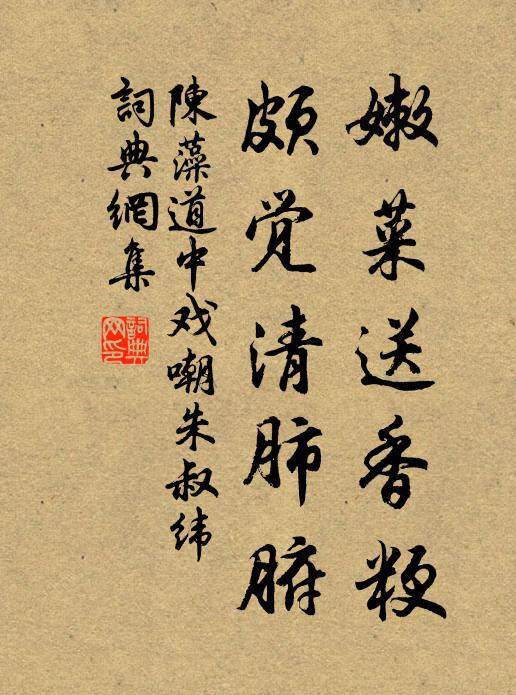 嫩菜送香粳
颇觉清肺腑
陳藻道中戏嘲朱叔纬
詞典網集
詞典网印